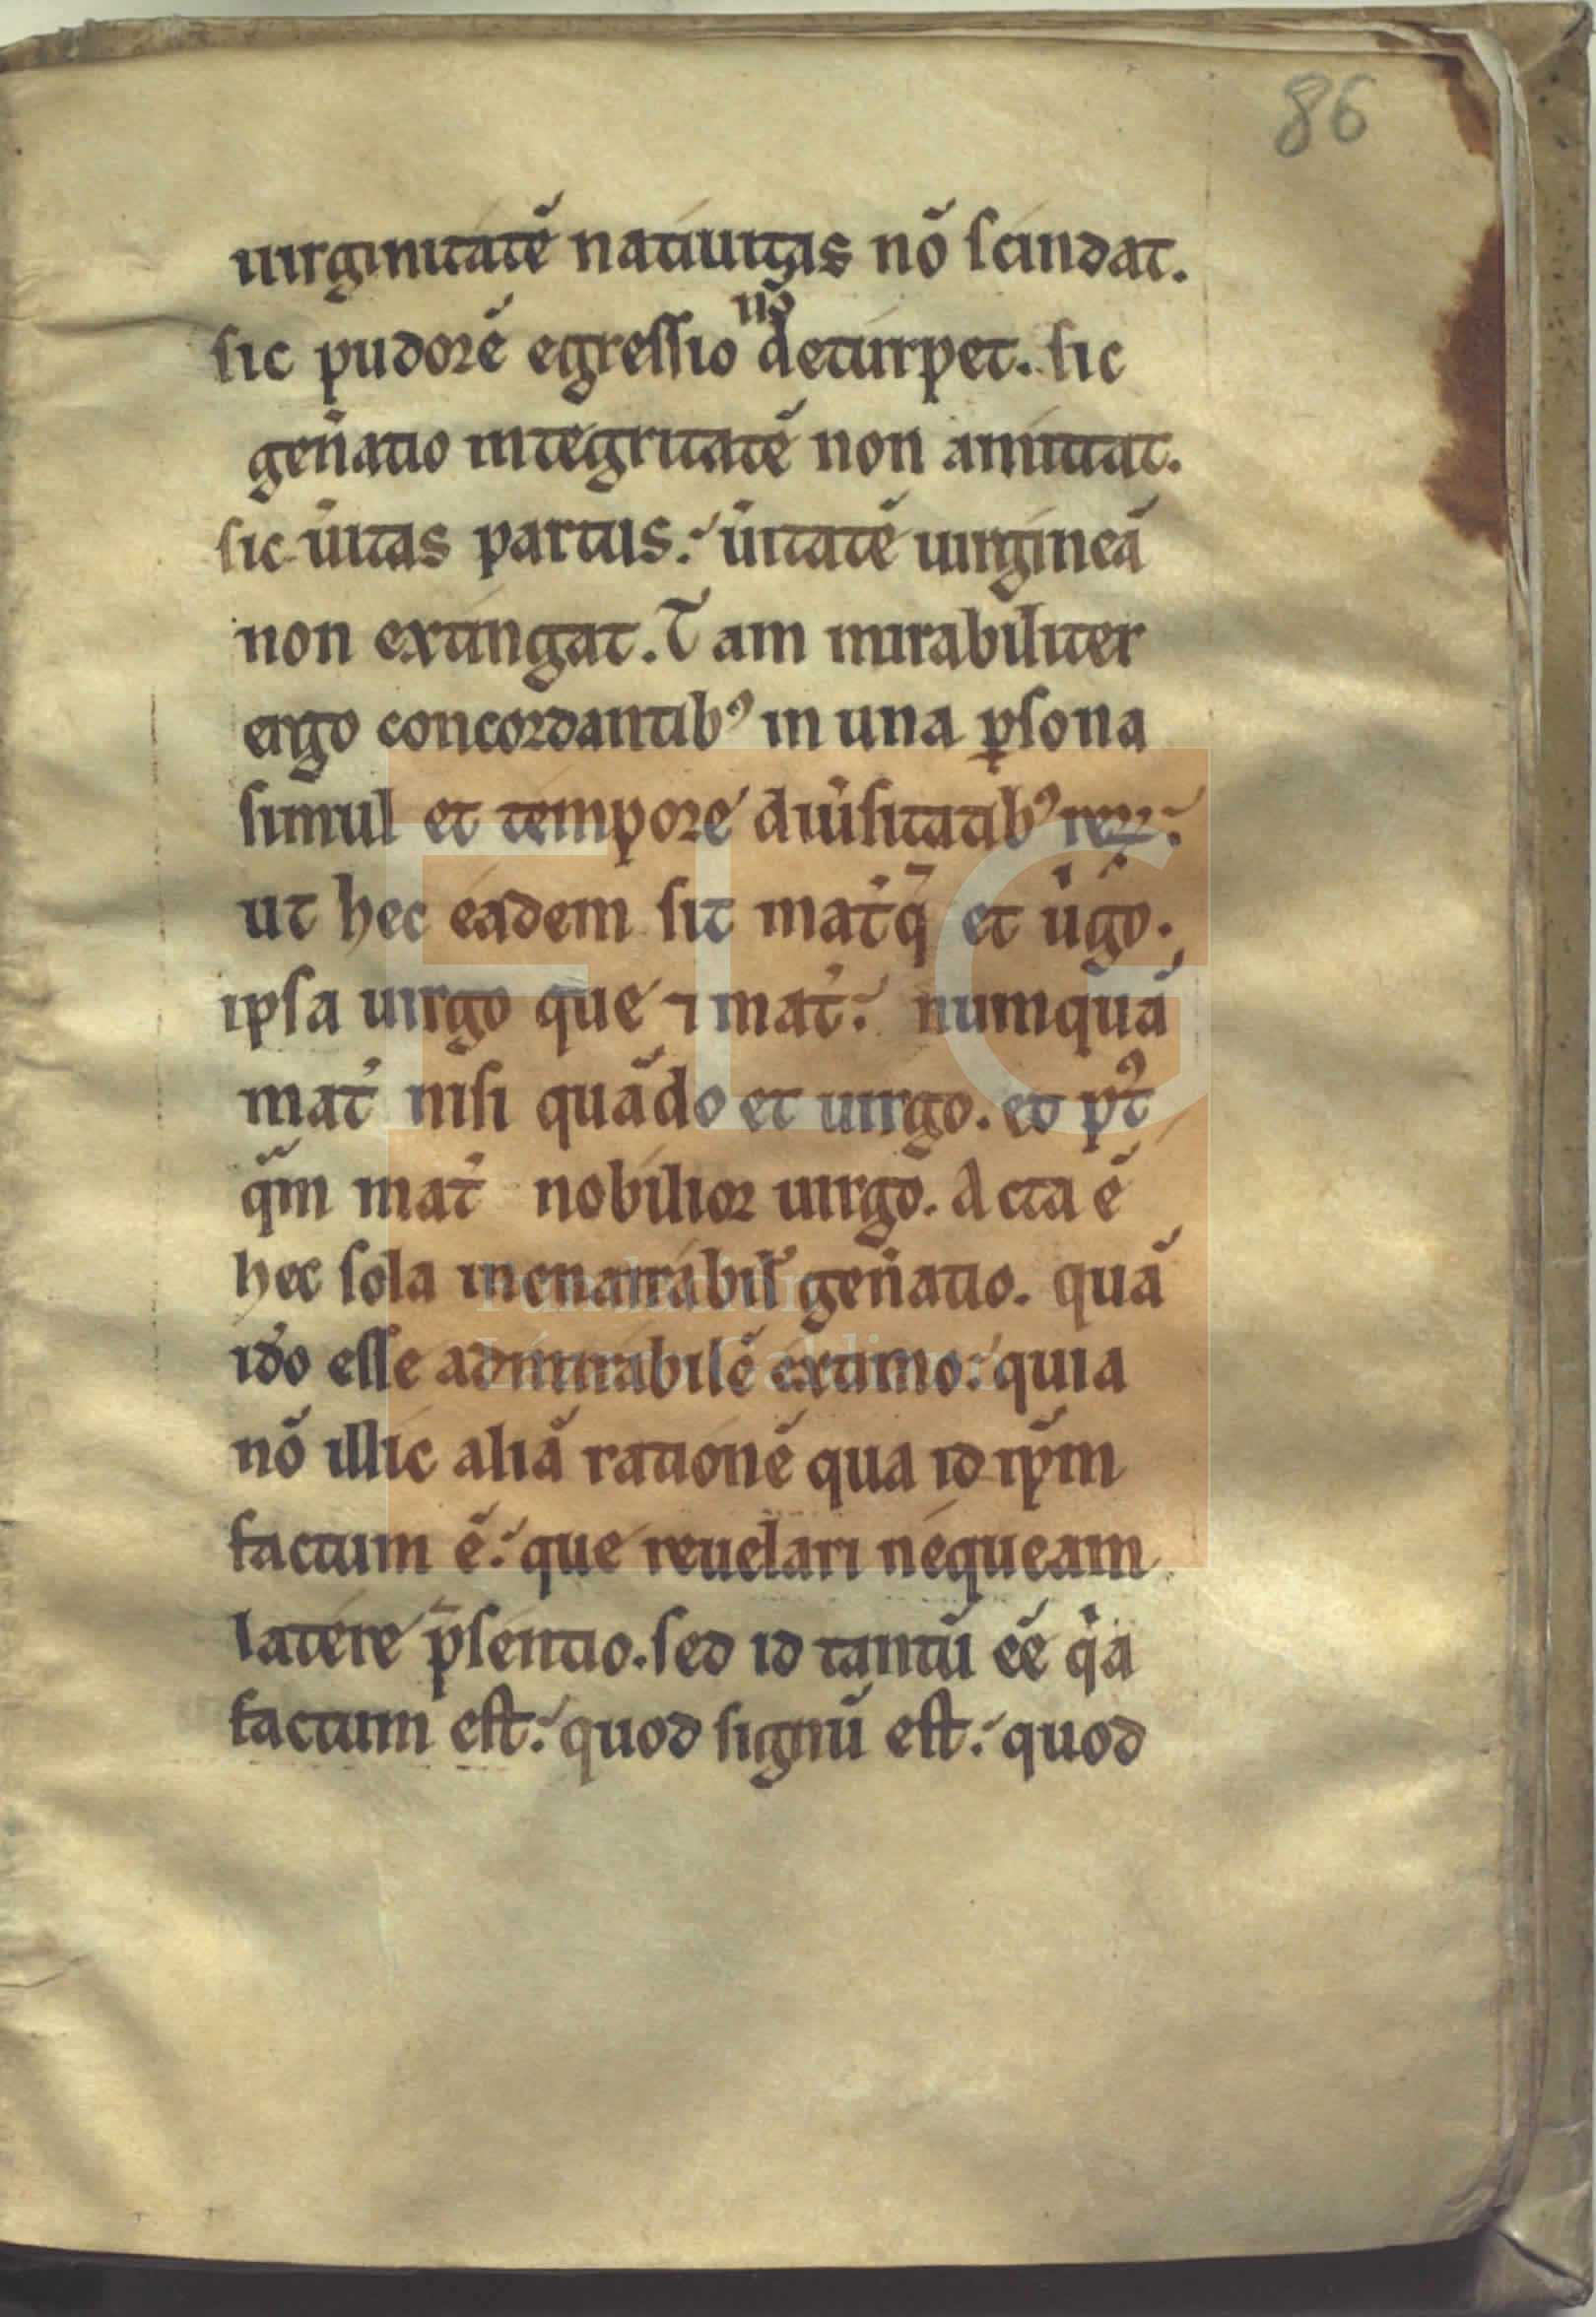 86
uirginitatē natiuitas nō scindat.
sic pudorē egressio nō deturpet. sic
gen̄atio integritatē non amittat.
sic u̾itas partus. u̾itatē uirgineā
non extingat. Tam mirabiliter
ergo concordantibꝰ in una ꝑsona
simul et tempore diu̾sitatibꝰ reꝝ.
ut hec eadem sit mat̾ q̄ et u̾go.
ipsa uirgo que ⁊ mat̾. numquā
mat̾ nisi quādo et uirgo. eo
qm̄ mat̾ nobilior uirgo. Acta ē
hec sola inenarrabil̾ gen̄atio. quā
id̾o esse admirabilē extimo. quia
nō illic aliā rationē qua id ip̄m
factum ē. que reuelari nequeam
latere p̄sentio. sed id tantū eē qͥa
factum est. quod signū est. quod
FLG
Fundación
Lázaro Galdiano